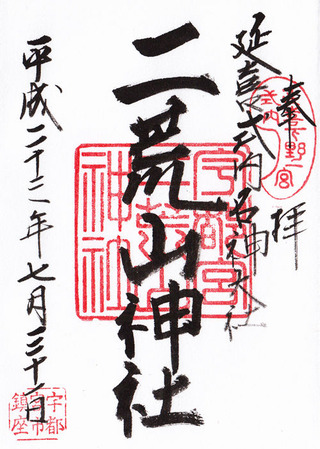 奉拝
延喜式内名神大社
二荒山神社
平成二十二年七月三十一日
下野一宮
宇都宮二荒山神社
宇都宮市鎮座